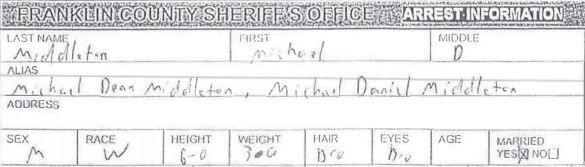 FRANKLIN COUNTY SHERIFF'S OFFICE ARREST INFORMATION
LAST NAME FIRST MIDDLE
Middleton Michael D
ALIAS
Michael Dean Middleton, Michael Daniel Middleton
ADDRESS
SEX RACE HEIGHT WEIGHT HAIR EYES AGE MARRIED
M W 6-0 300 Bro Bro YES☒ NO☐